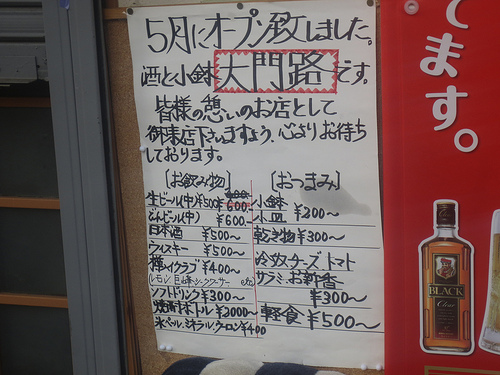 5月にオープン致しました。
酒と小鉢 大門路 です。
皆様の憩いのお店として
御来店下さいますよう、心よりお待ち
しております。
[お飲み物]
生ビール(中) ¥600
びんビール(中) ¥600〜
日本酒 ¥500〜
ウィスキー ¥500〜
樽ハイクラブ ¥400〜
レモン 巨峰 シークワーサー etc
ソフトドリンク ¥300〜
焼酎ボトル ¥2000〜
氷ペール、ミネラル、ウーロン ¥400
[おつまみ]
小鉢
小皿 ¥200〜
乾き物 ¥300〜
冷奴 チーズ トマト
サラミ お新香
¥300〜
軽食 ¥500〜
てます。
BLACK
Clear